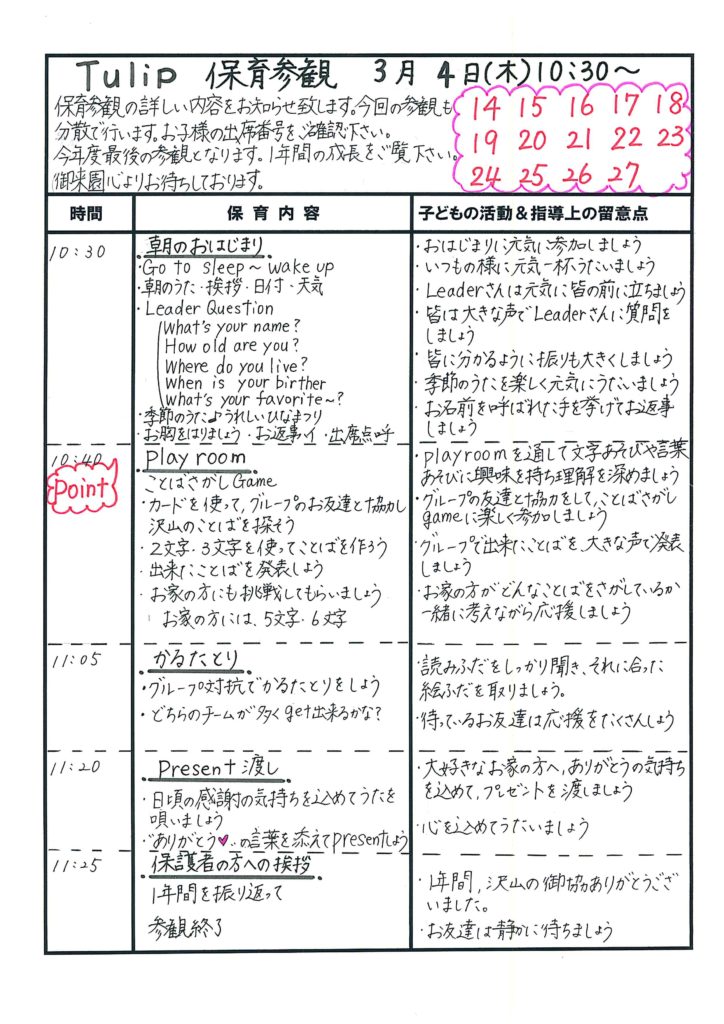 Tulip 保育参観 3月 4日(木)10:30～
保育参観の詳しい内容をお知らせ致します。今回の参観も
分散で行います。お子様の出席番号をご確認下さい。
今年度最後の参観となります。1年間の成長をご覧下さい。
御来園心よりお待ちしております。
14 15 16 17 18
19 20 21 22 23
24 25 26 27
時間
保育内容
子どもの活動&指導上の留意点
10:30
朝のおはじまり
・Go to sleep～wake up
・朝のうた・挨拶・日付・天気
・Leader Question
What's your name?
How old are you?
Where do you live?
When is your birther
What's your favorite～?
・季節のうた♪うれしいひなまつり
・お胸をはりましょう・お返事イ・出席点呼
・おはじまりに元気に参加しましょう
・いつもの様に元気一杯うたいましょう
・Leaderさんは元気に皆の前に立ちましょう
・皆は大きな声でLeaderさんに質問を
しましょう
・皆に分かるように振りも大きくしましょう
・季節のうたを楽しく元気にうたいましょう
・お名前を呼ばれた手を挙げてお返事
しましょう
10:40
Point
Play room
ことばさがしGame
・カードを使って,グループのお友達と協力し
沢山のことばを探そう
・2文字・3文字を使ってことばを作ろう
・出来たことばを発表しよう
・お家の方にも挑戦してもらいましょう
お家の方には、5文字・6文字
・playroomを通して文字あそびや言葉
あそびに興味を持ち理解を深めましょう
・グループの友達と協力をして,ことばさがし
gameに楽しく参加しましょう
・グループで出来たことばを、大きな声で発表
しましょう
・お家の方がどんなことばをさがしているか
一緒に考えながら応援しましょう
11:05
かるたとり
・グループ対抗でかるたとりをしよう
・どちらのチームが多くget出来るかな?
・読みふだをしっかり聞き、それに合った
絵ふだを取りましょう。
・待っているお友達は応援をたくさんしよう
11:20
Present渡し
・日頃の感謝の気持ちを込めてうたを
唄いましょう
・"ありがとう♥"の言葉を添えてpresentしよう
・大好きなお家の方へ,ありがとうの気持ち
を込めて,プレゼントを渡しましょう
・心を込めてうたいましょう
11:25
保護者の方への挨拶
1年間を振り返って
参観終了
・1年間,沢山の御協ありがとうござ
いました。
・お友達は静かに待ちましょう